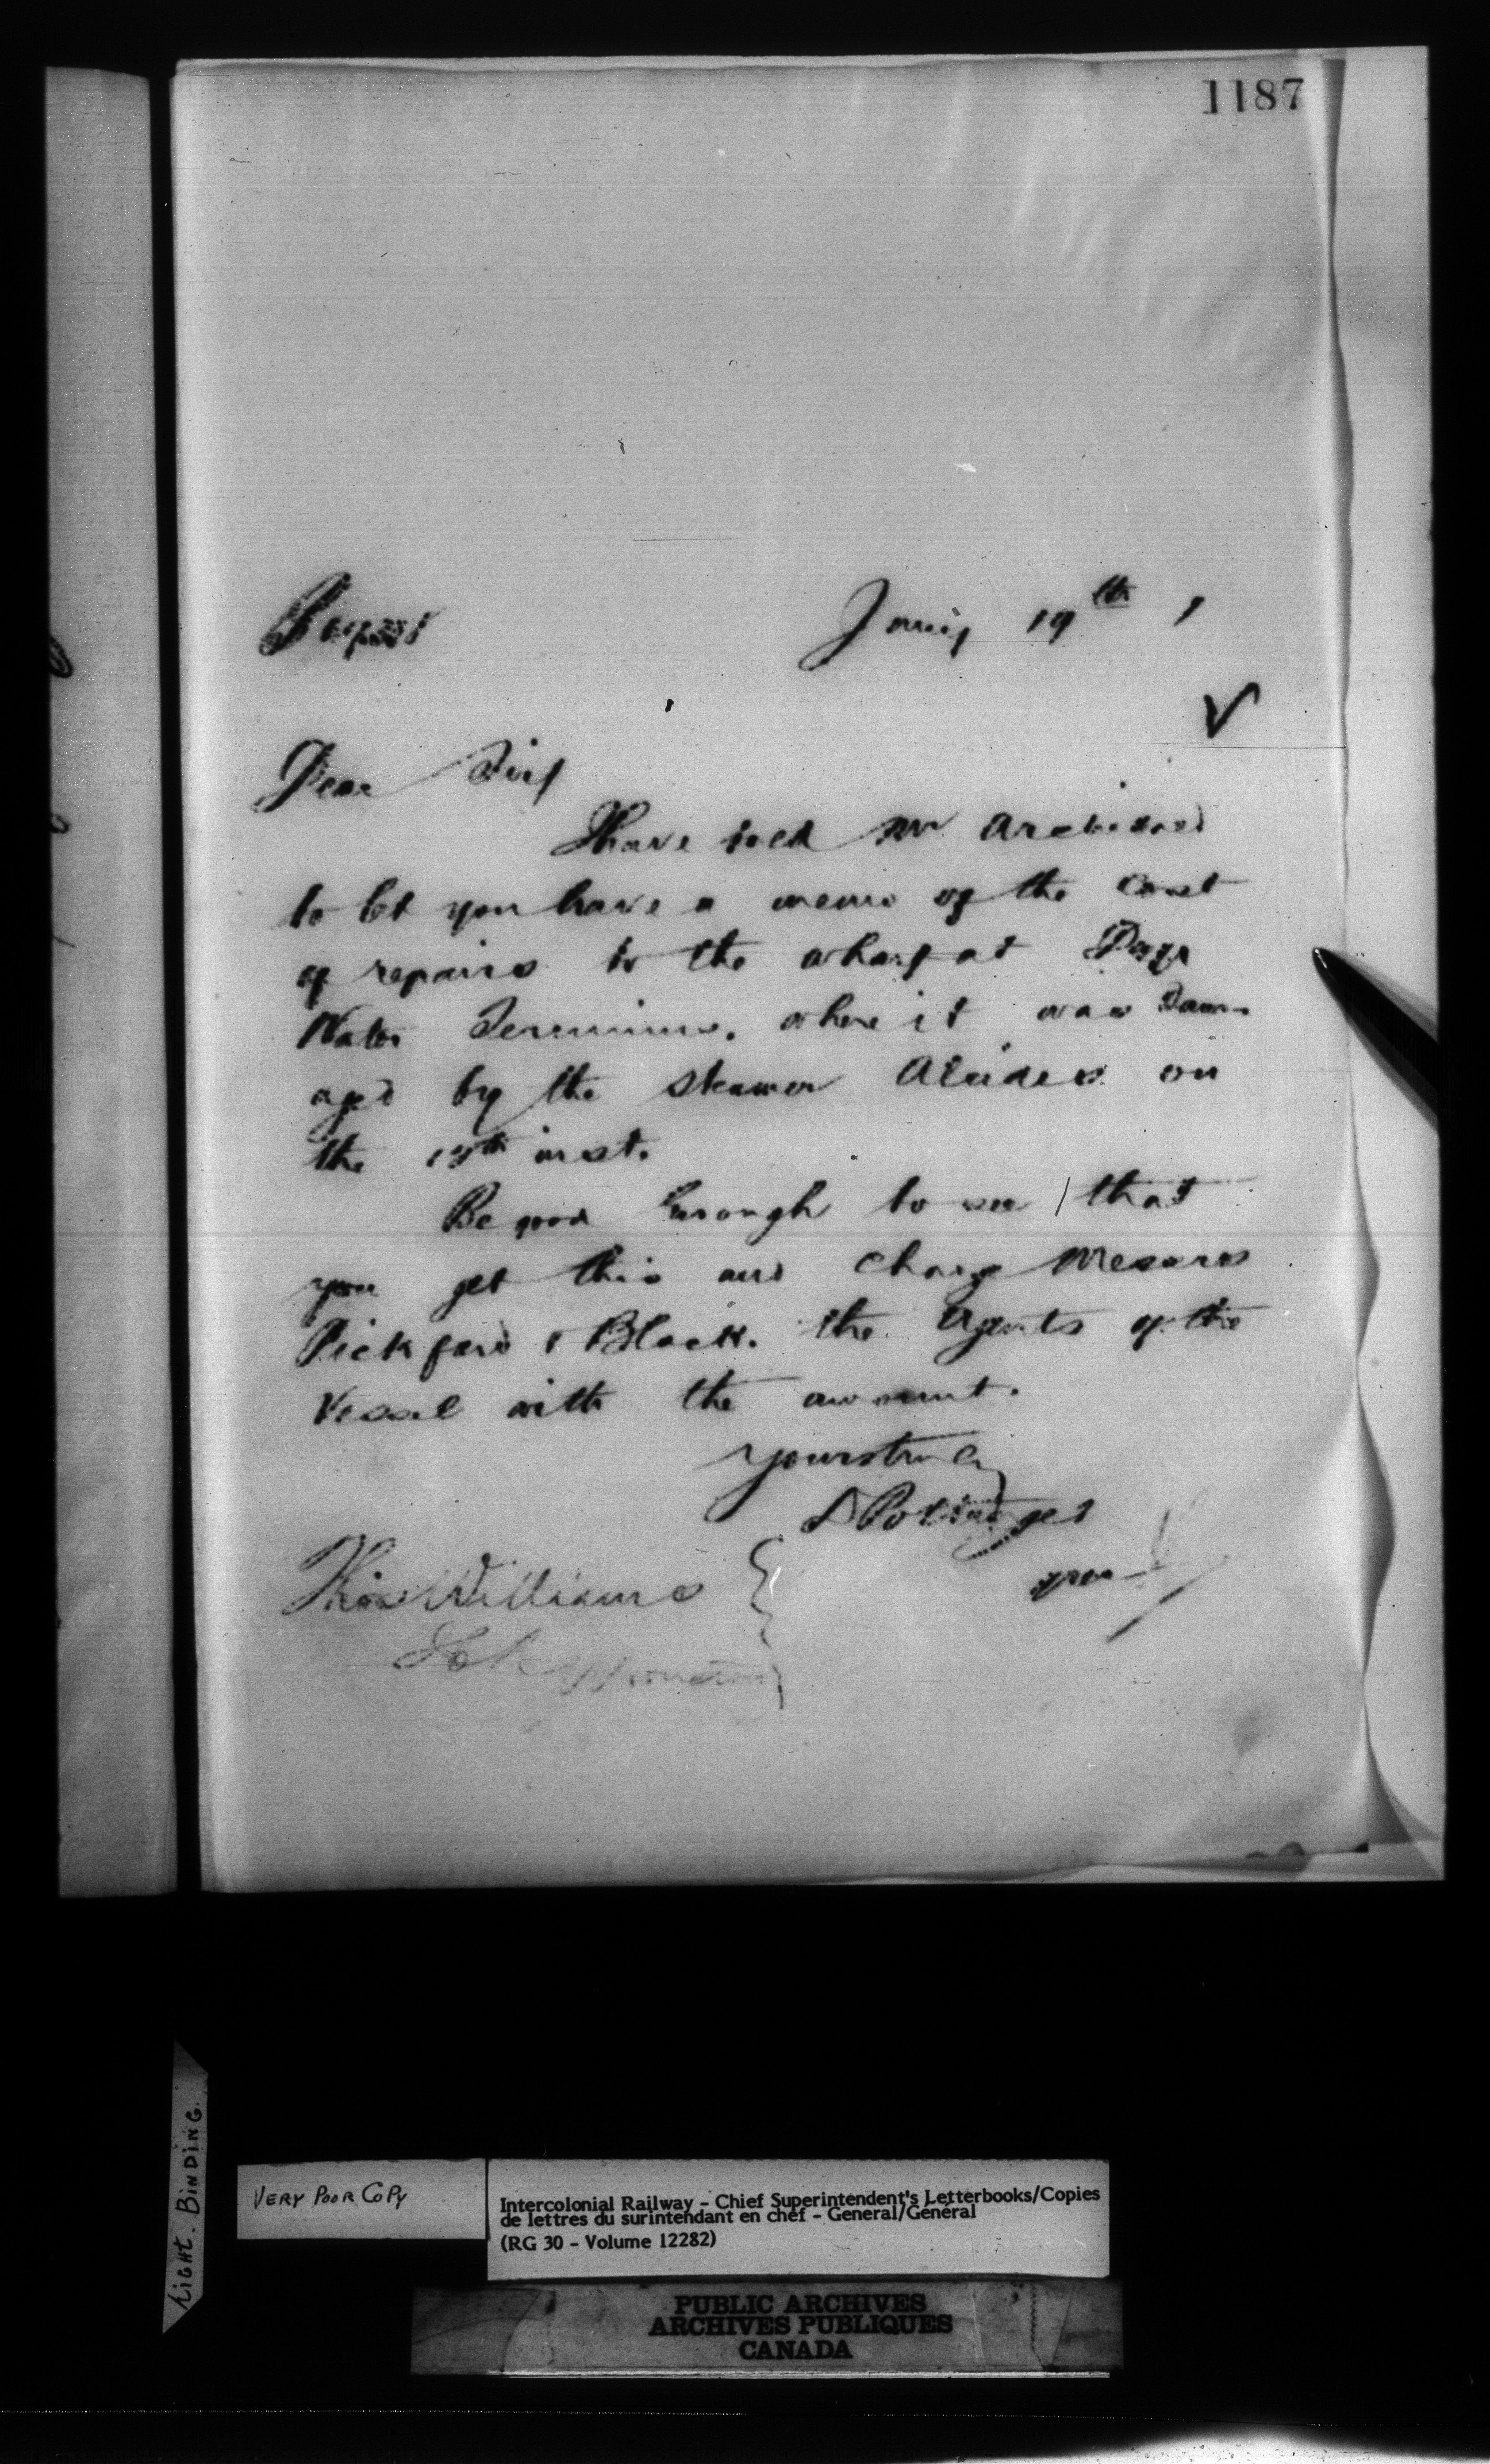 1187
Jany 19th
Dear Sir
I have told Mr Archibald
to let you have a memo of the cost
of repairs to the wharf at Deep
Water Terminus, where it was dam-
aged by the Steamer Alcides on
the 15th inst.
Be good Enough to see that
you get this and charge Messrs
Pickford & Black. the Agents of the
Vessel with the amount.
Yours truly
D Pottinger
Thos Williams
LIGHT. BINDING.
VERY POOR COPY
Intercolonial Railway - Chief Superintendent's Letterbooks/Copies
de lettres du surintendant en chef - General/Général
(RG 30 - Volume 12282)
PUBLIC ARCHIVES
ARCHIVES PUBLIQUES
CANADA